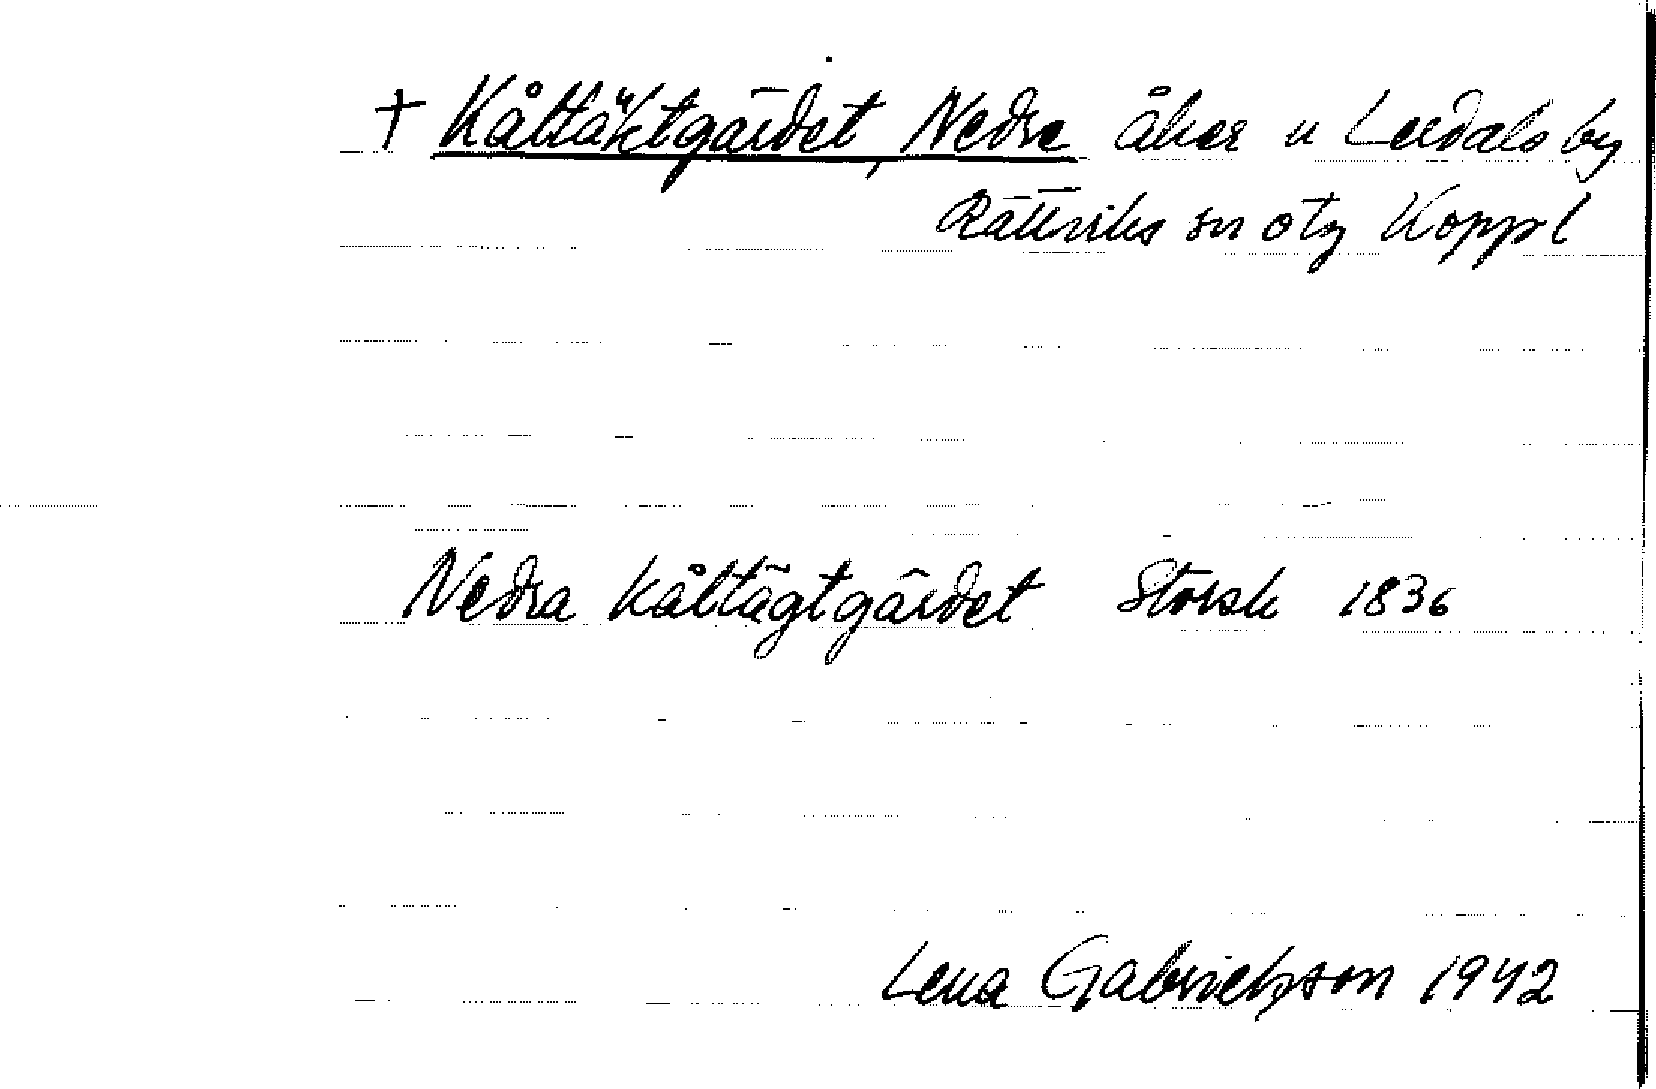 † Kåltäktgärdet, Nedre åker u Lerdals by
Rättviks sn o tg Koppl
Nedra Kåltägtgärdet Storsk 1836
Lena Gabrielsson 1942